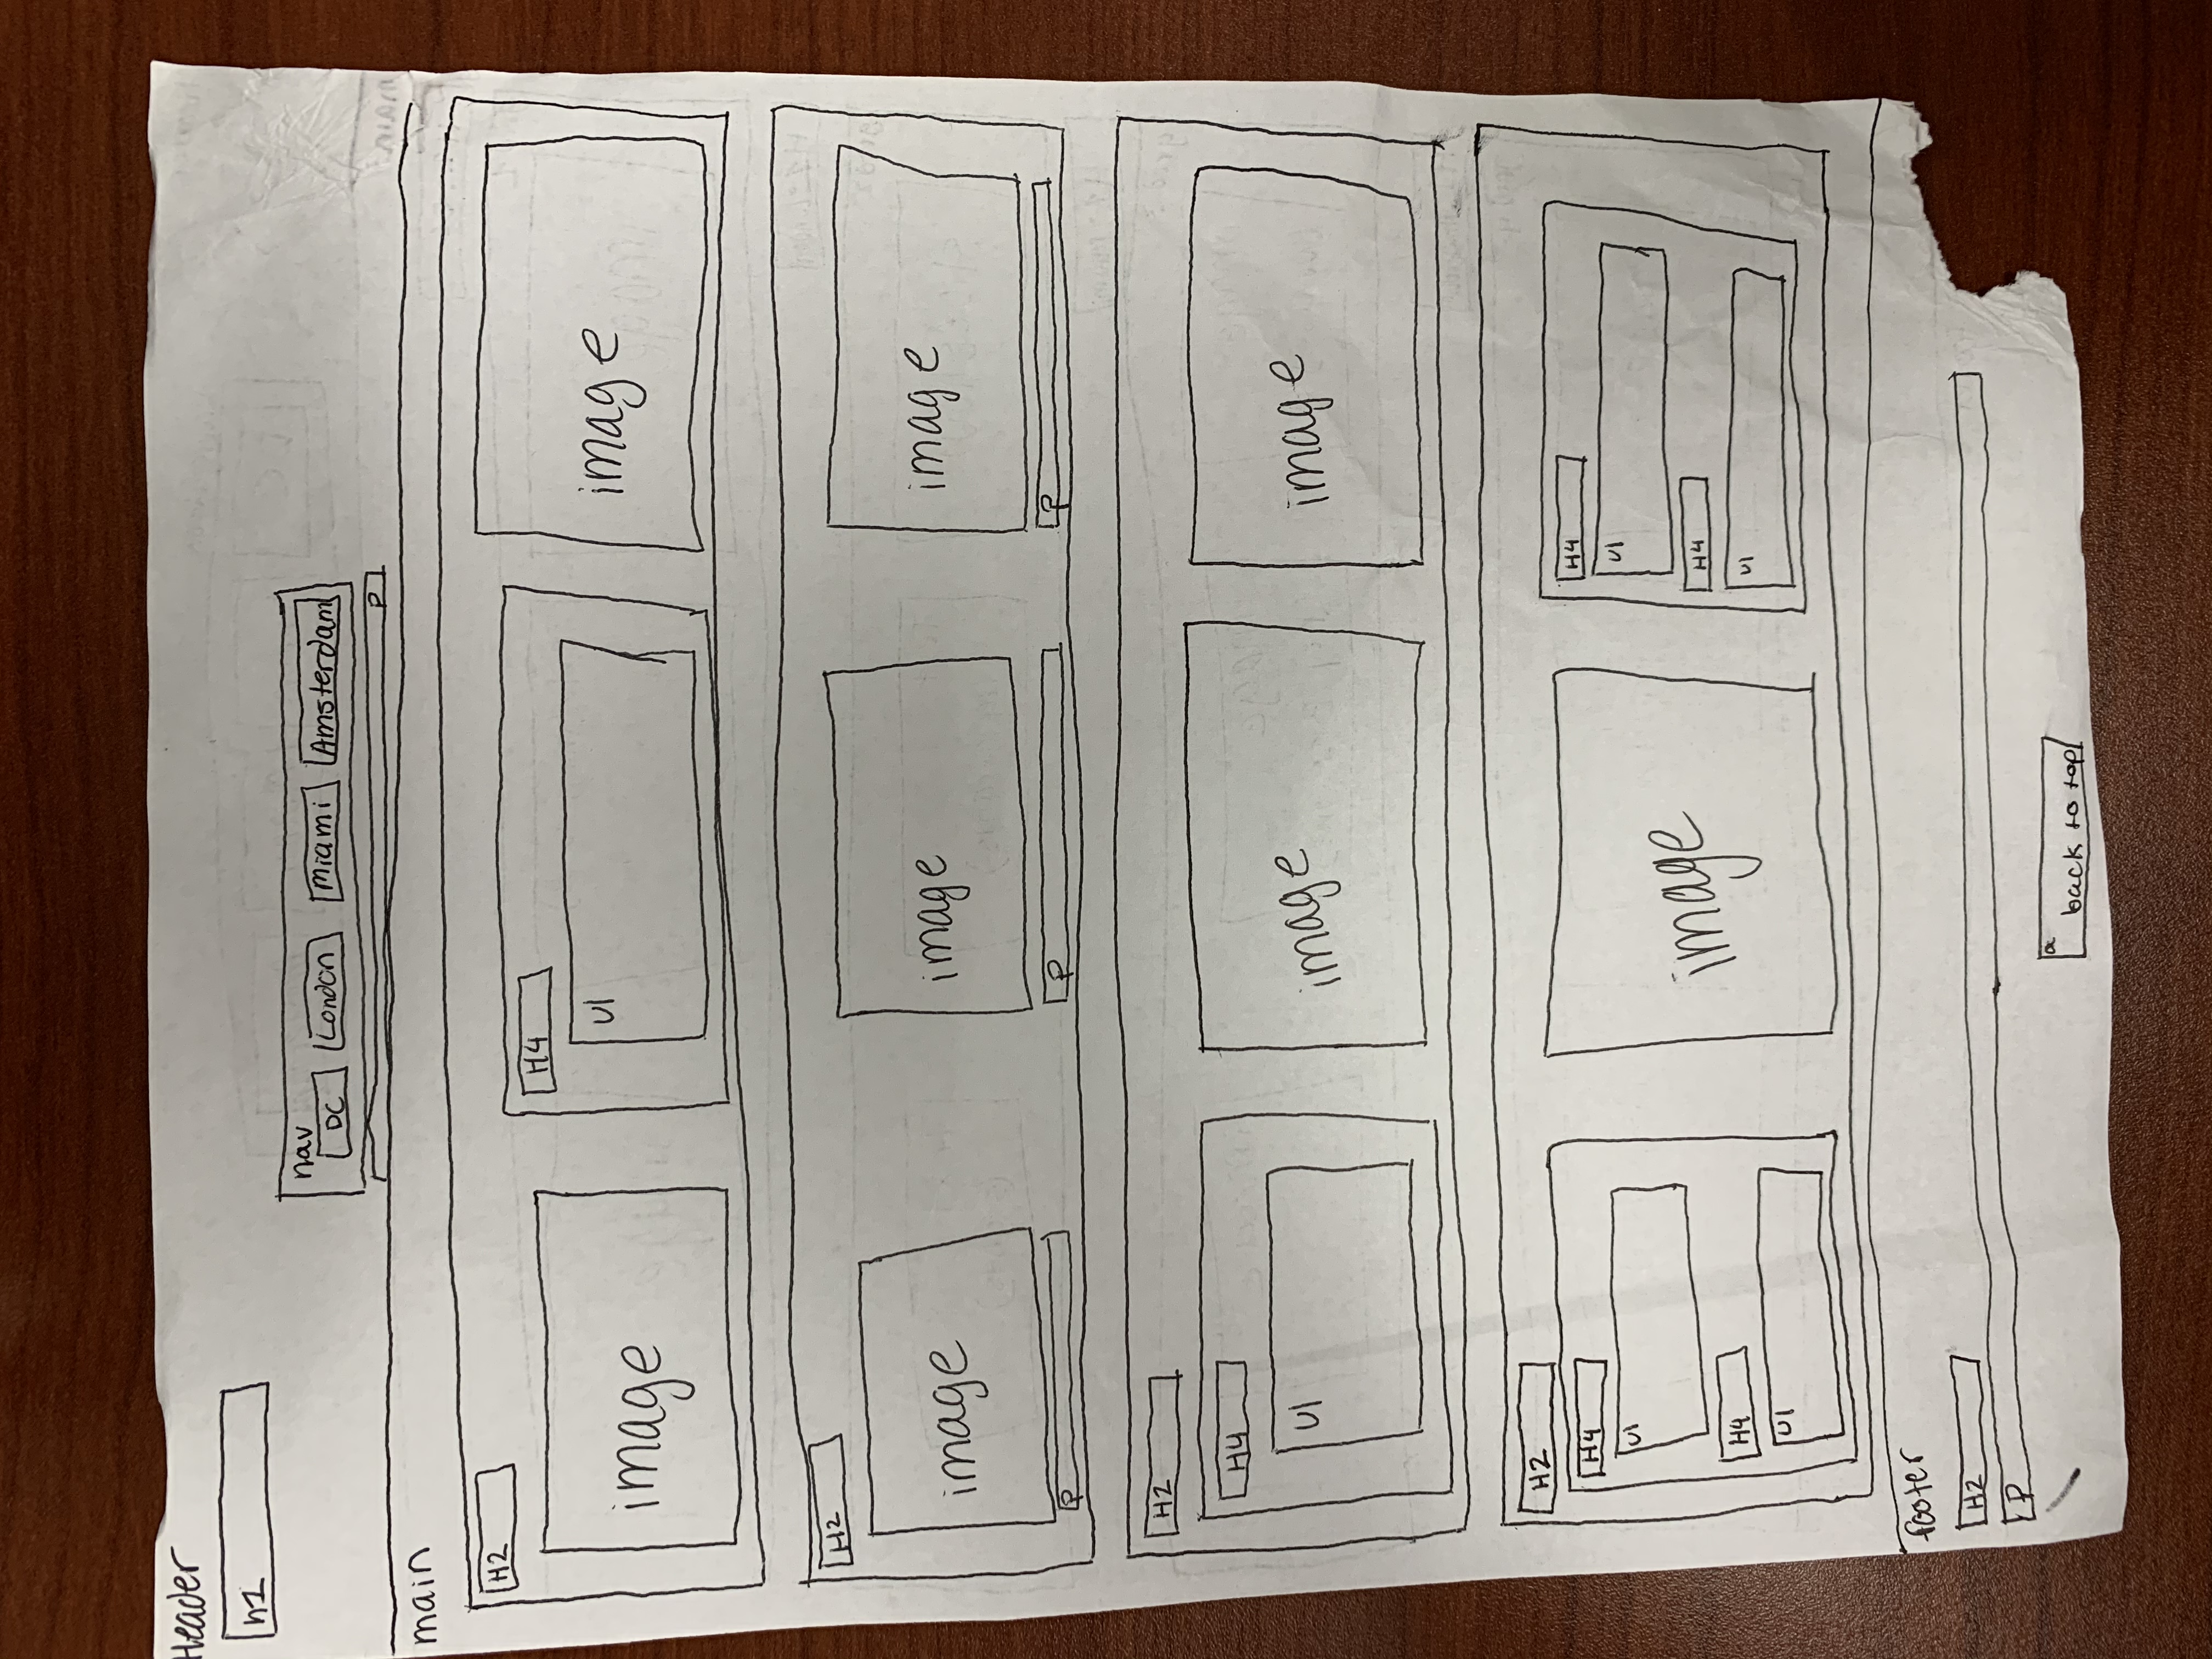 Header
h1
nav
DC London Miami Amsterdam
P
main
H2
image
H4
ul
image
H2
image
P
image
P
image
P
H2
H4
ul
image
image
H2
H4
ul
H4
ul
image
H4
ul
H4
ul
footer
H2
P
a
back to top